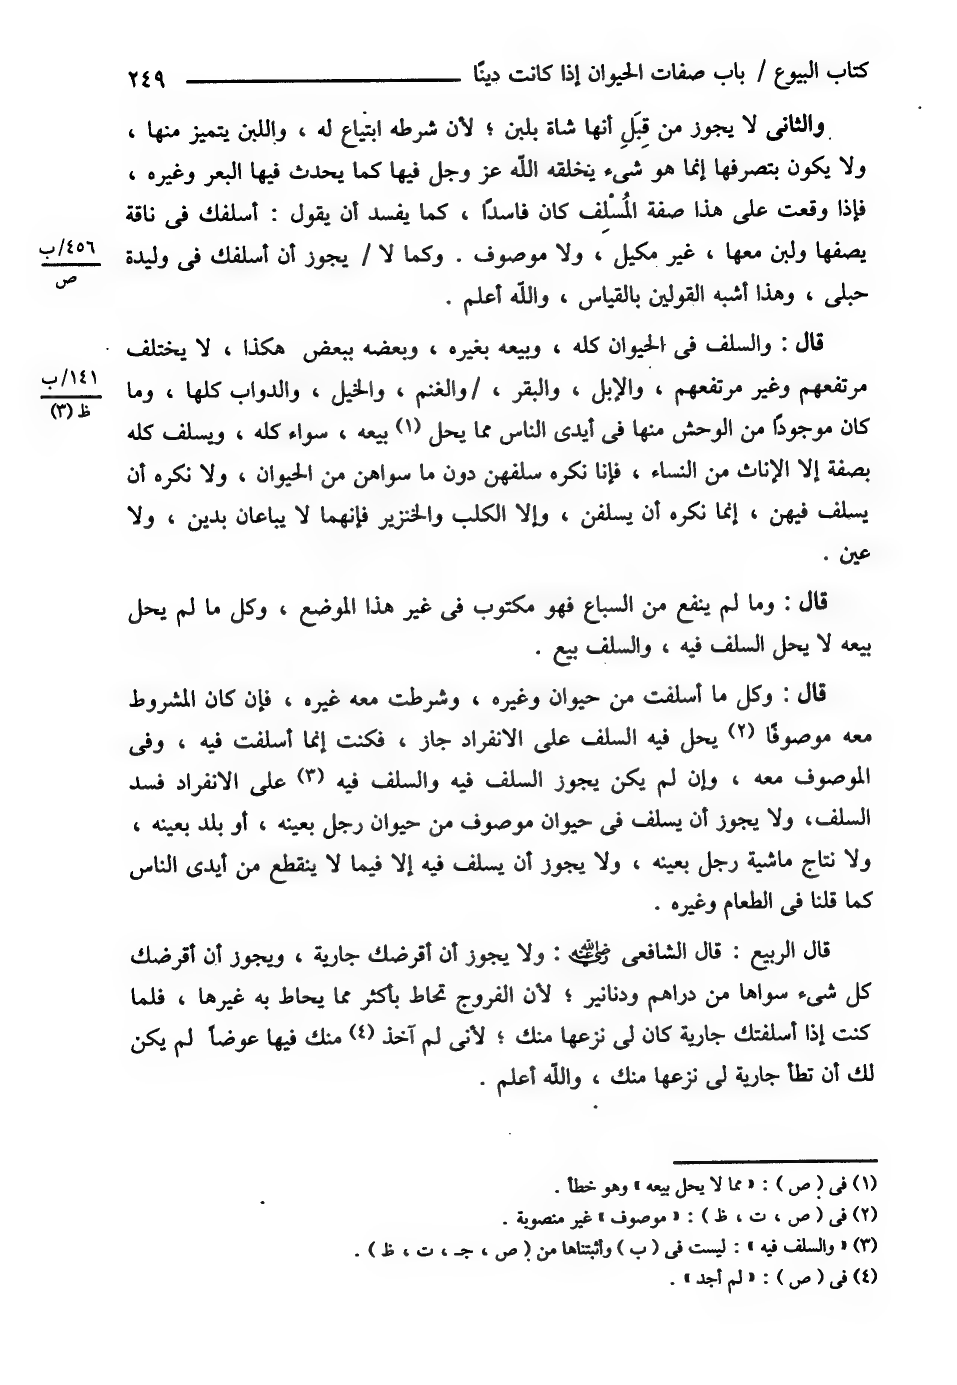 كتاب البيوع / باب صفات الحيوان إذا كانت دينًا ٢٤٩
والثانى لا يجوز من قِبَلِ أنها شاة بلبن ؛ لأن شرطه ابتياع له ، واللبن يتميز منها ،
ولا يكون بتصرفها إنما هو شىء يخلقه اللّه عز وجل فيها كما يحدث فيها البعر وغيره ،
فإذا وقعت على هذا صفة المُسْلِف كان فاسدًا ، كما يفسد أن يقول : أسلفك فى ناقة
يصفها ولبن معها ، غير مكيل ، ولا موصوف . وكما لا / يجوز أن أسلفك فى وليدة
٤٥٦/ب
ص
حبلى ، وهذا أشبه القولين بالقياس ، واللّه أعلم .
قال : والسلف فى الحيوان كله ، وبيعه بغيره ، وبعضه ببعض هكذا ، لا يختلف
مرتفعهم وغير مرتفعهم ، والإبل ، والبقر ، / والغنم ، والخيل ، والدواب كلها ، وما
١٤١/ب
ظ (٣)
كان موجودًا من الوحش منها فى أيدى الناس مما يحل (١) بيعه ، سواء كله ، ويسلف كله
بصفة إلا الإناث من النساء ، فإنا نكره سلفهن دون ما سواهن من الحيوان ، ولا نكره أن
يسلف فيهن ، إنما نكره أن يسلفن ، وإلا الكلب والخنزير فإنهما لا يباعان بدين ، ولا
عين .
قال : وما لم ينفع من السباع فهو مكتوب فى غير هذا الموضع ، وكل ما لم يحل
بيعه لا يحل السلف فيه ، والسلف بيع .
قال : وكل ما أسلفت من حيوان وغيره ، وشرطت معه غيره ، فإن كان المشروط
معه موصوفًا (٢) يحل فيه السلف على الانفراد جاز ، فكنت إنما أسلفت فيه ، وفى
الموصوف معه ، وإن لم يكن يجوز السلف فيه والسلف فيه (٣) على الانفراد فسد
السلف، ولا يجوز أن يسلف فى حيوان موصوف من حيوان رجل بعينه ، أو بلد بعينه ،
ولا نتاج ماشية رجل بعينه ، ولا يجوز أن يسلف فيه إلا فيما لا ينقطع من أيدى الناس
كما قلنا فى الطعام وغيره .
قال الربيع : قال الشافعى رضي الله عنه : ولا يجوز أن أقرضك جارية ، ويجوز أن أقرضك
كل شىء سواها من دراهم ودنانير ؛ لأن الفروج تحاط بأكثر مما يحاط به غيرها ، فلما
كنت إذا أسلفتك جارية كان لى نزعها منك ؛ لأنى لم آخذ (٤) منك فيها عوضاً لم يكن
لك أن تطأ جارية لى نزعها منك ، واللّه أعلم .
(١) فى ( ص ) : « مما لا يحل بيعه » وهو خطأ .
(٢) فى ( ص ، ت ، ظ ) : « موصوف » غير منصوبة .
(٣) « والسلف فيه » : ليست فى ( ب ) وأثبتناها من ( ص ، جـ ، ت ، ظ ) .
(٤) فى ( ص ) : « لم أجد » .